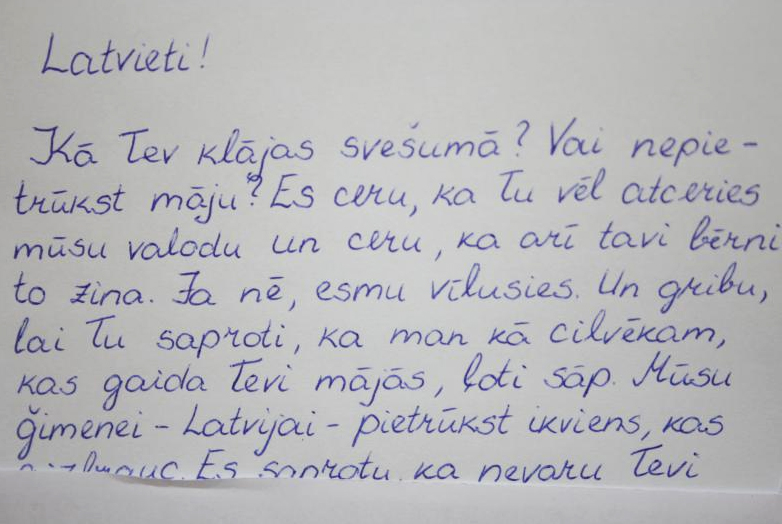 Latvieti!
Kā Tev klājas svešumā? Vai nepie-
trūkst māju? Es ceru, ka Tu vēl atceries
mūsu valodu un ceru, ka arī tavi bērni
to zina. Ja nē, esmu vīlusies. Un gribu,
lai Tu saproti, ka man kā cilvēkam,
kas gaida Tevi mājās, ļoti sāp. Mūsu
ģimenei - Latvijai - pietrūkst ikviens, kas
Es saprotu, ka nevaru Tevi